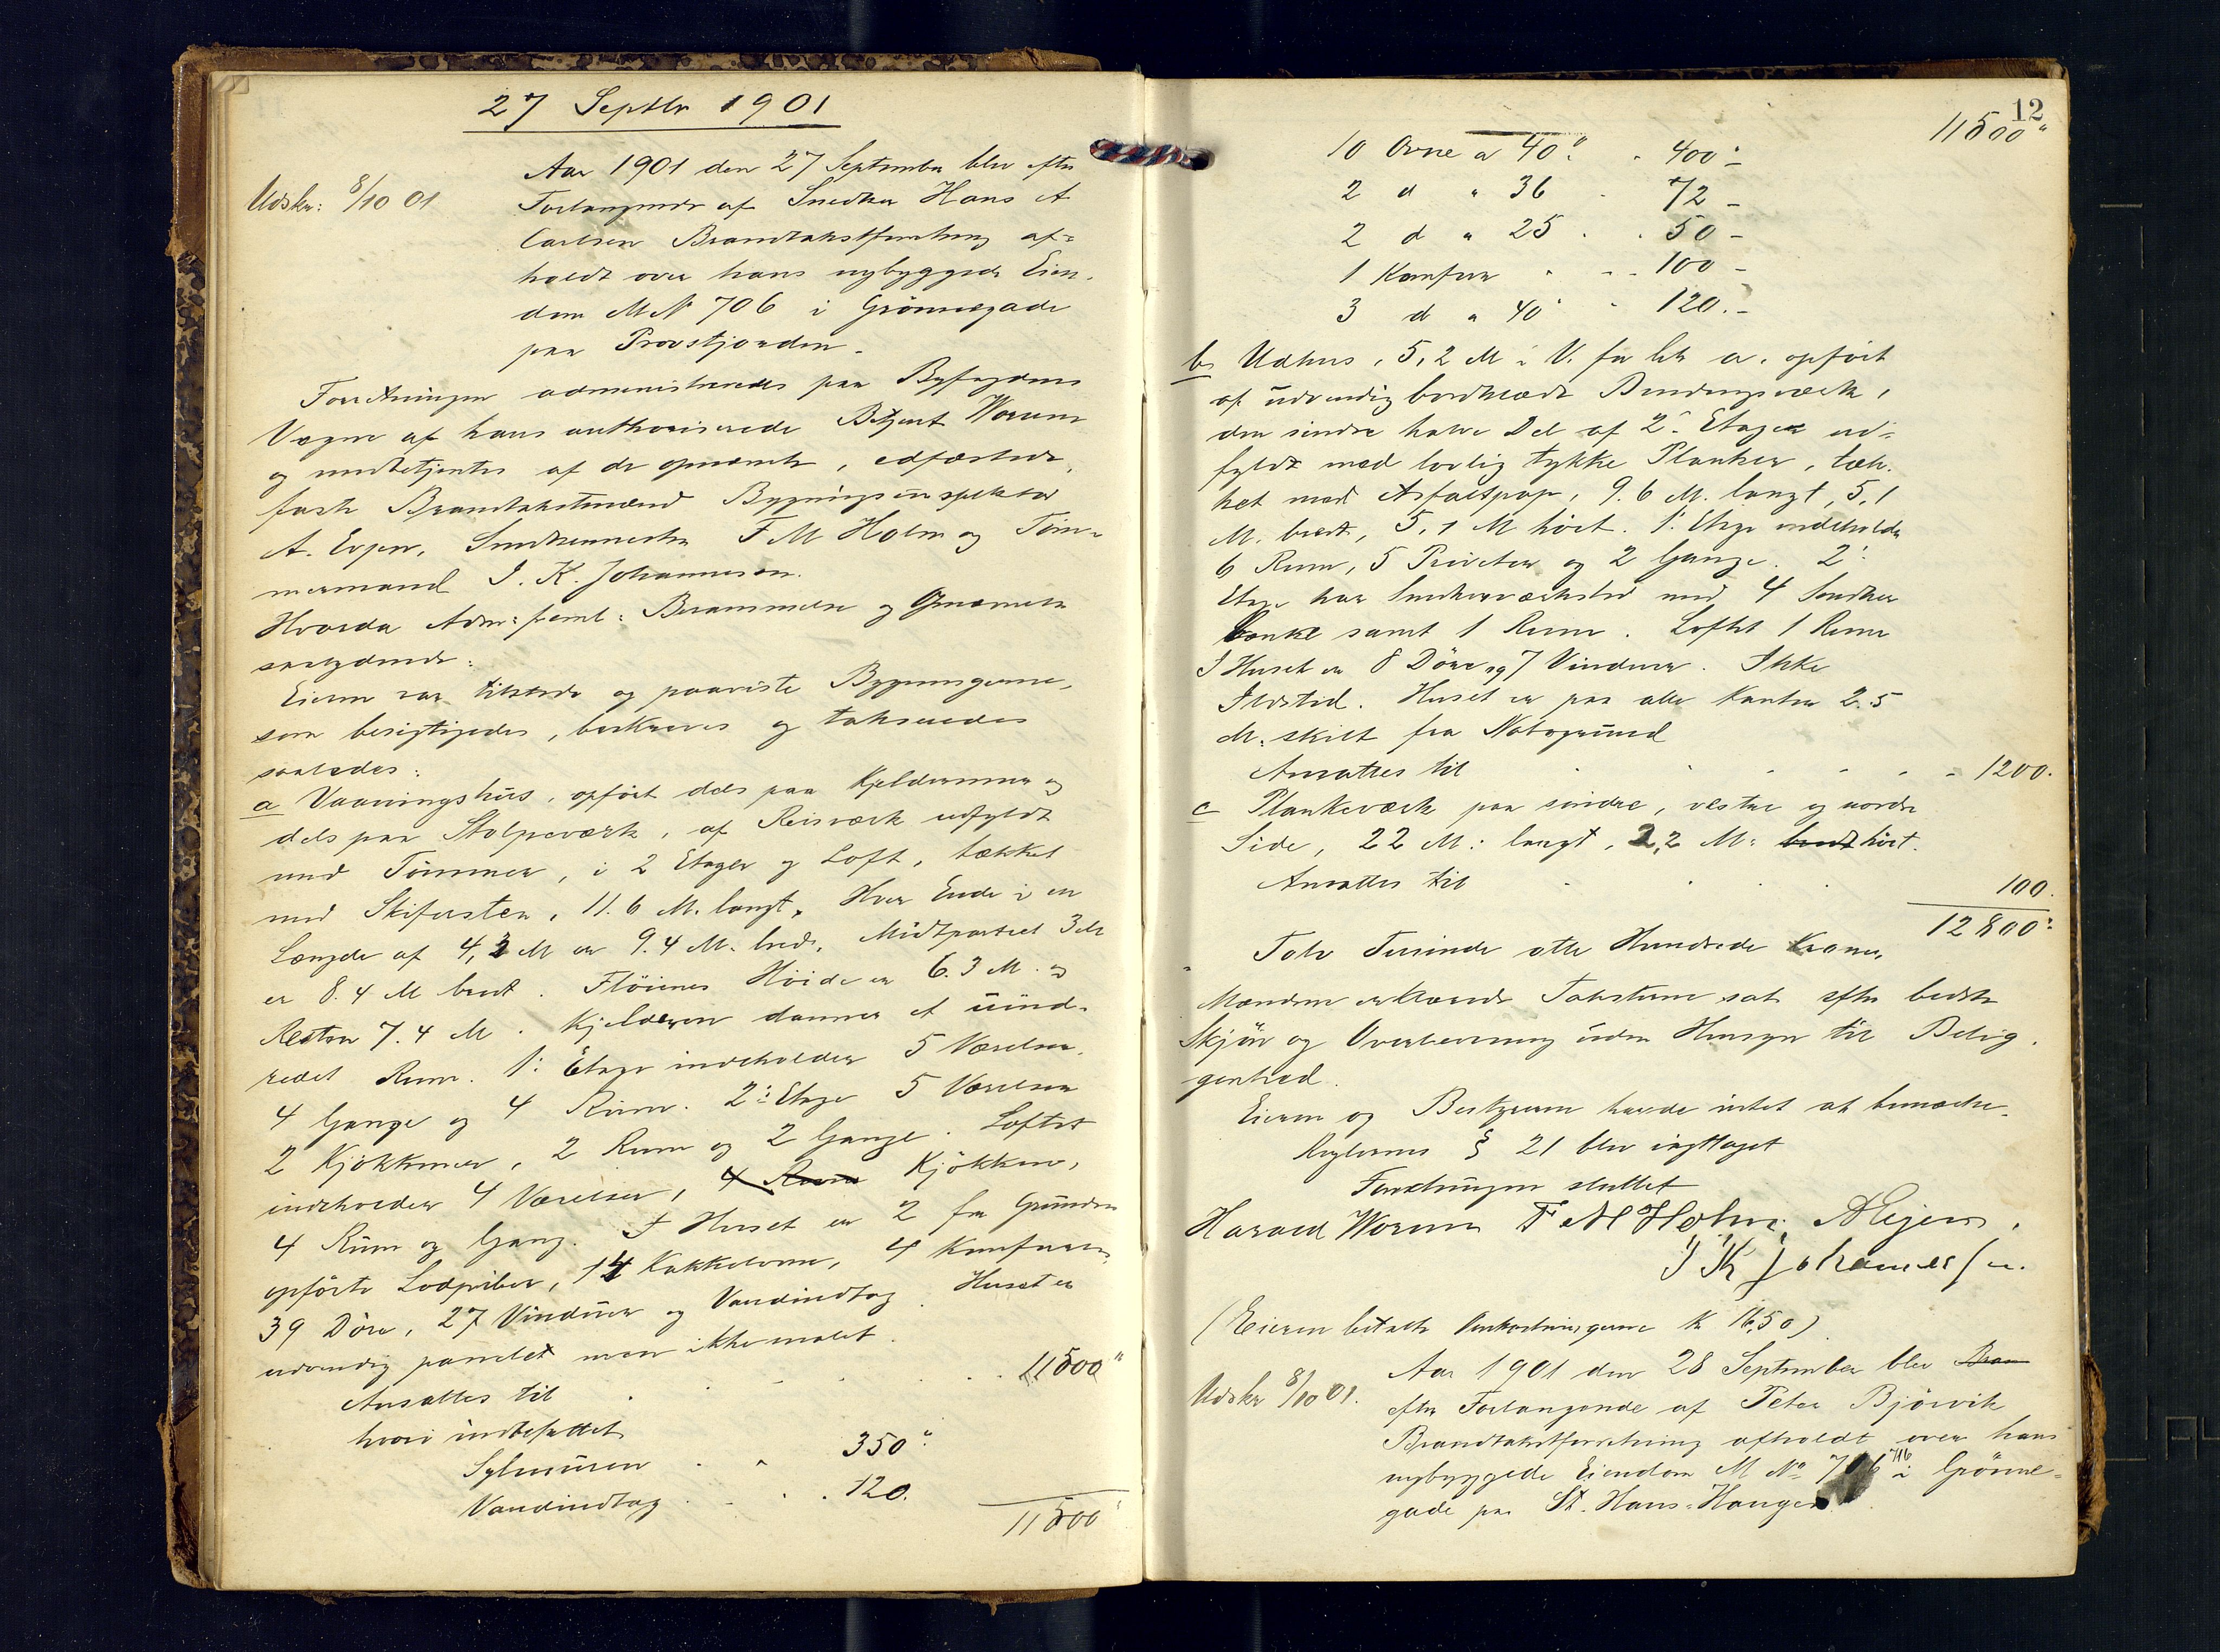 27 Septbr 1901
Udskr: 8/10 01
Aar 1901 den 27 September blev efter
Forlangende af Snedker Hans A
Carlsen Brandtakstforretning af-
holdt over hans nybyggede Eien-
dom M N 706 i Grönnegade
paa Provstjorden.
Forretningen administreredes paa Byfogdens
Vegne af hans authoriserede Betjent Worum
og medbetjentes af de opnævnte, edfæstede,
faste Brandtakstmænd Bygningsinspektør
A. Eyjen, Snedkermester F M Holm og Töm-
mermand I. K. Johannesen.
Hvorda Adm: freml: Berammelse og Opnævnelse
saalydende:
Eieren var tilstede og paaviste Bygningerne,
som besigtigedes, beskreves og takseredes
saaledes:
a Vaaningshus, opfört dels paa Kjeldermur og
dels paa Stolpeværk, af Reisværk udfyldt
med Tömmer, i 2 Etager og Loft, tækket
med Skifersten, 11.6 M. langt. Hver Ende i en
Længde af 4,2 M er 9.4 M. bred. Midtpartiet
er 8.4 M bredt. Flöienes Höide er 6.3 M. og
Resten 7.4 M. Kjelderen danner et uind-
redet Rum. 1: Etage indeholder 5 Værelser,
4 Gange og 4 Rum. 2: Etage 5 Værelser
2 Kjökkener, 2 Rum og 2 Gange. Loftet
indeholder 4 Værelser, 4 Rum Kjökken,
4 Rum og Gang. I Huset er 2 fra Grunden
opförte Lodpiber, 14 Kakkelovne, 4 Komfurer,
39 Döre, 27 Vinduer og Vandindtag. Huset er
udvendig panelet men ikke malet.
Ansattes til 11500"
hvori indbefattet
Sylmuren 350"
Vandindtag 120.
11500
12
11500"
10 Ovne a 40". 400:-
2 d " 36 72 -
2 d " 25 50 -
1 Komfur 100 -
3 d a 40 120.-
b, Udhus, 5,2 M i V. for litr a. opfört
af udvendig bordklædt Bindingsværk,
den söndre halve Del af 2: Etage ud-
fyldt med lovlig tykke Planker, tæk-
ket med Asfaltpap, 9.6 M. langt, 5,1
M. bredt, 5,1 M höit. 1: Etage indeholder
6 Rum, 5 Priveter og 2 Gange. 2:
Etage har Snedkerværksted med 4 Snedker
bænke samt 1 Rum. Loftet 1 Rum
I Huset er 8 Döre og 7 Vinduer. Ikke
Ildsted. Huset er paa alle Kanter 2.5
M: skilt fra Nabogrund
Ansattes til 1200.
c Plankeværk paa söndre, vestre og nordre
Side, 22 M: langt, 2,2 M: bredt höit.
Ansattes til 100.
12800:
Tolv Tusinde otte Hundrede Kroner.
Mændene erklærede Taksterne sat efter bedste
Skjön og Overbevisning uden Hensyn til Belig-
genhed.
Eieren og Bestyreren havde intet at bemærke.
Reglernes § 21 blev iagttaget
Forretningen sluttet
Harald Worum F M Holm, A Eijen.
I K Johannessen.
(Eieren betalte Omkostningerne Kr 16,50)
Udskr 8/10 01.
Aar 1901 den 28 September blev Bran
efter Forlangende af Peter Björvik
Brandtakstforretning afholdt over hans
nybyggede Eiendom M No 716 i Grönne-
gade paa St. Hans-Haugen.